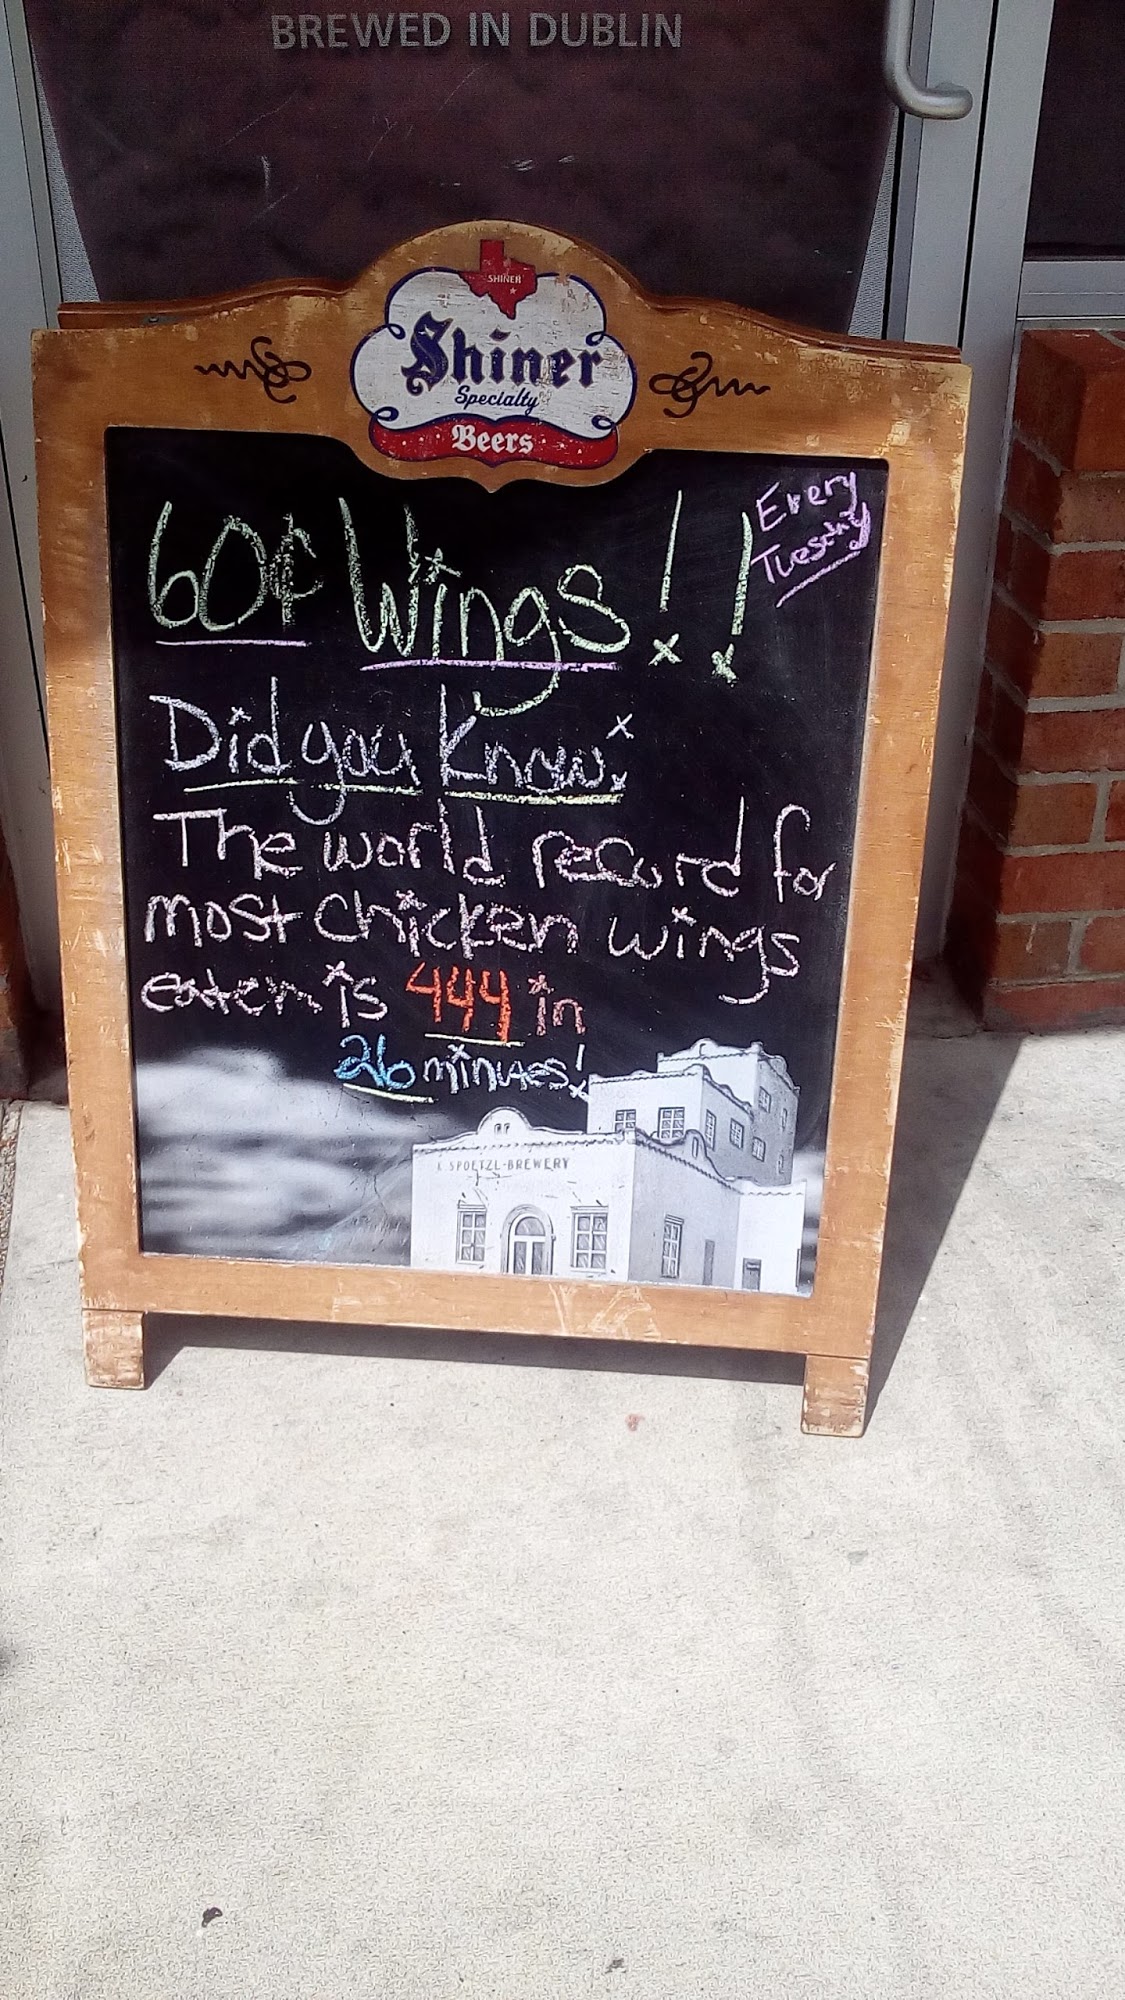 BREWED IN DUBLIN
SHINER
Shiner
Specialty
Beers
Every
Tuesday
60¢ Wings!!
Did you Know:
The world record for
most chicken wings
eaten is 444 in
26 minutes!
K SPOETZL-BREWERY